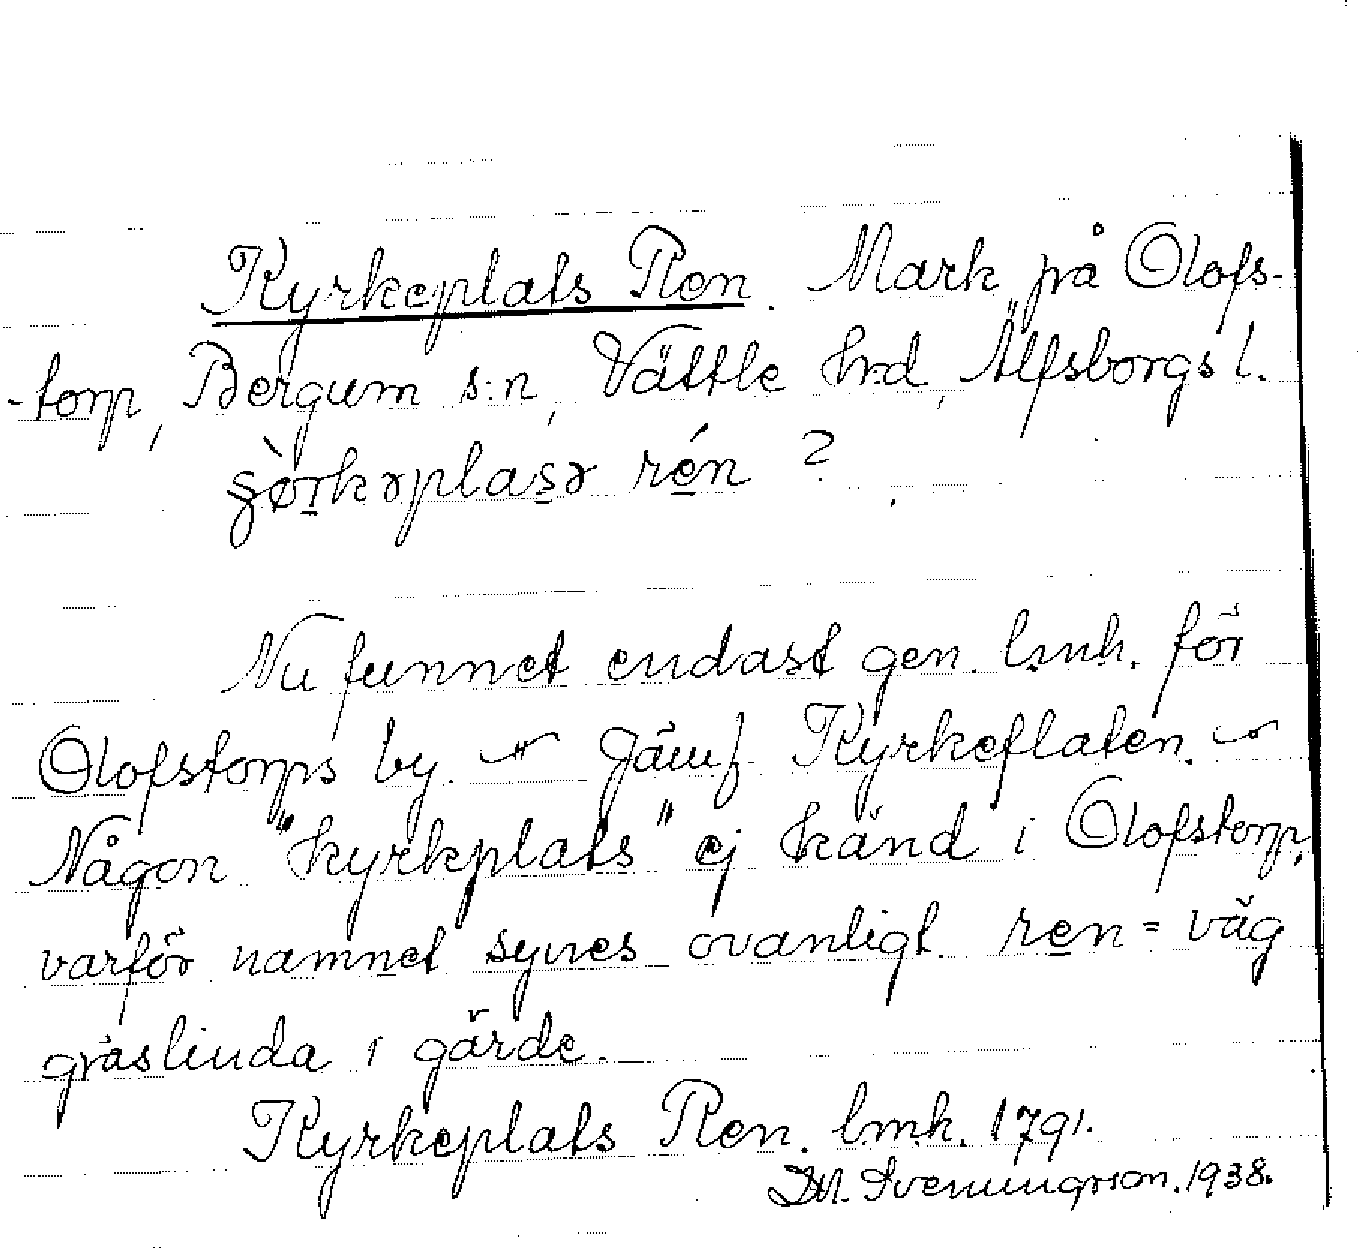 Kyrkeplats Ren. Mark på Olofs-
-torp, Bergum s:n, Vättle hrd, Älfsborgs l.
rén ?
Nu funnet endast gen. lmh. för
Olofstorps by. – Jämf Kyrkeflaten. –
Någon "kyrkplats" ej känd i Olofstorp,
varför namnet synes ovanligt. ren = väg
gräslinda i gärde.
Kyrkeplats Ren. lmh. 1791.
Sveningsson. 1938.